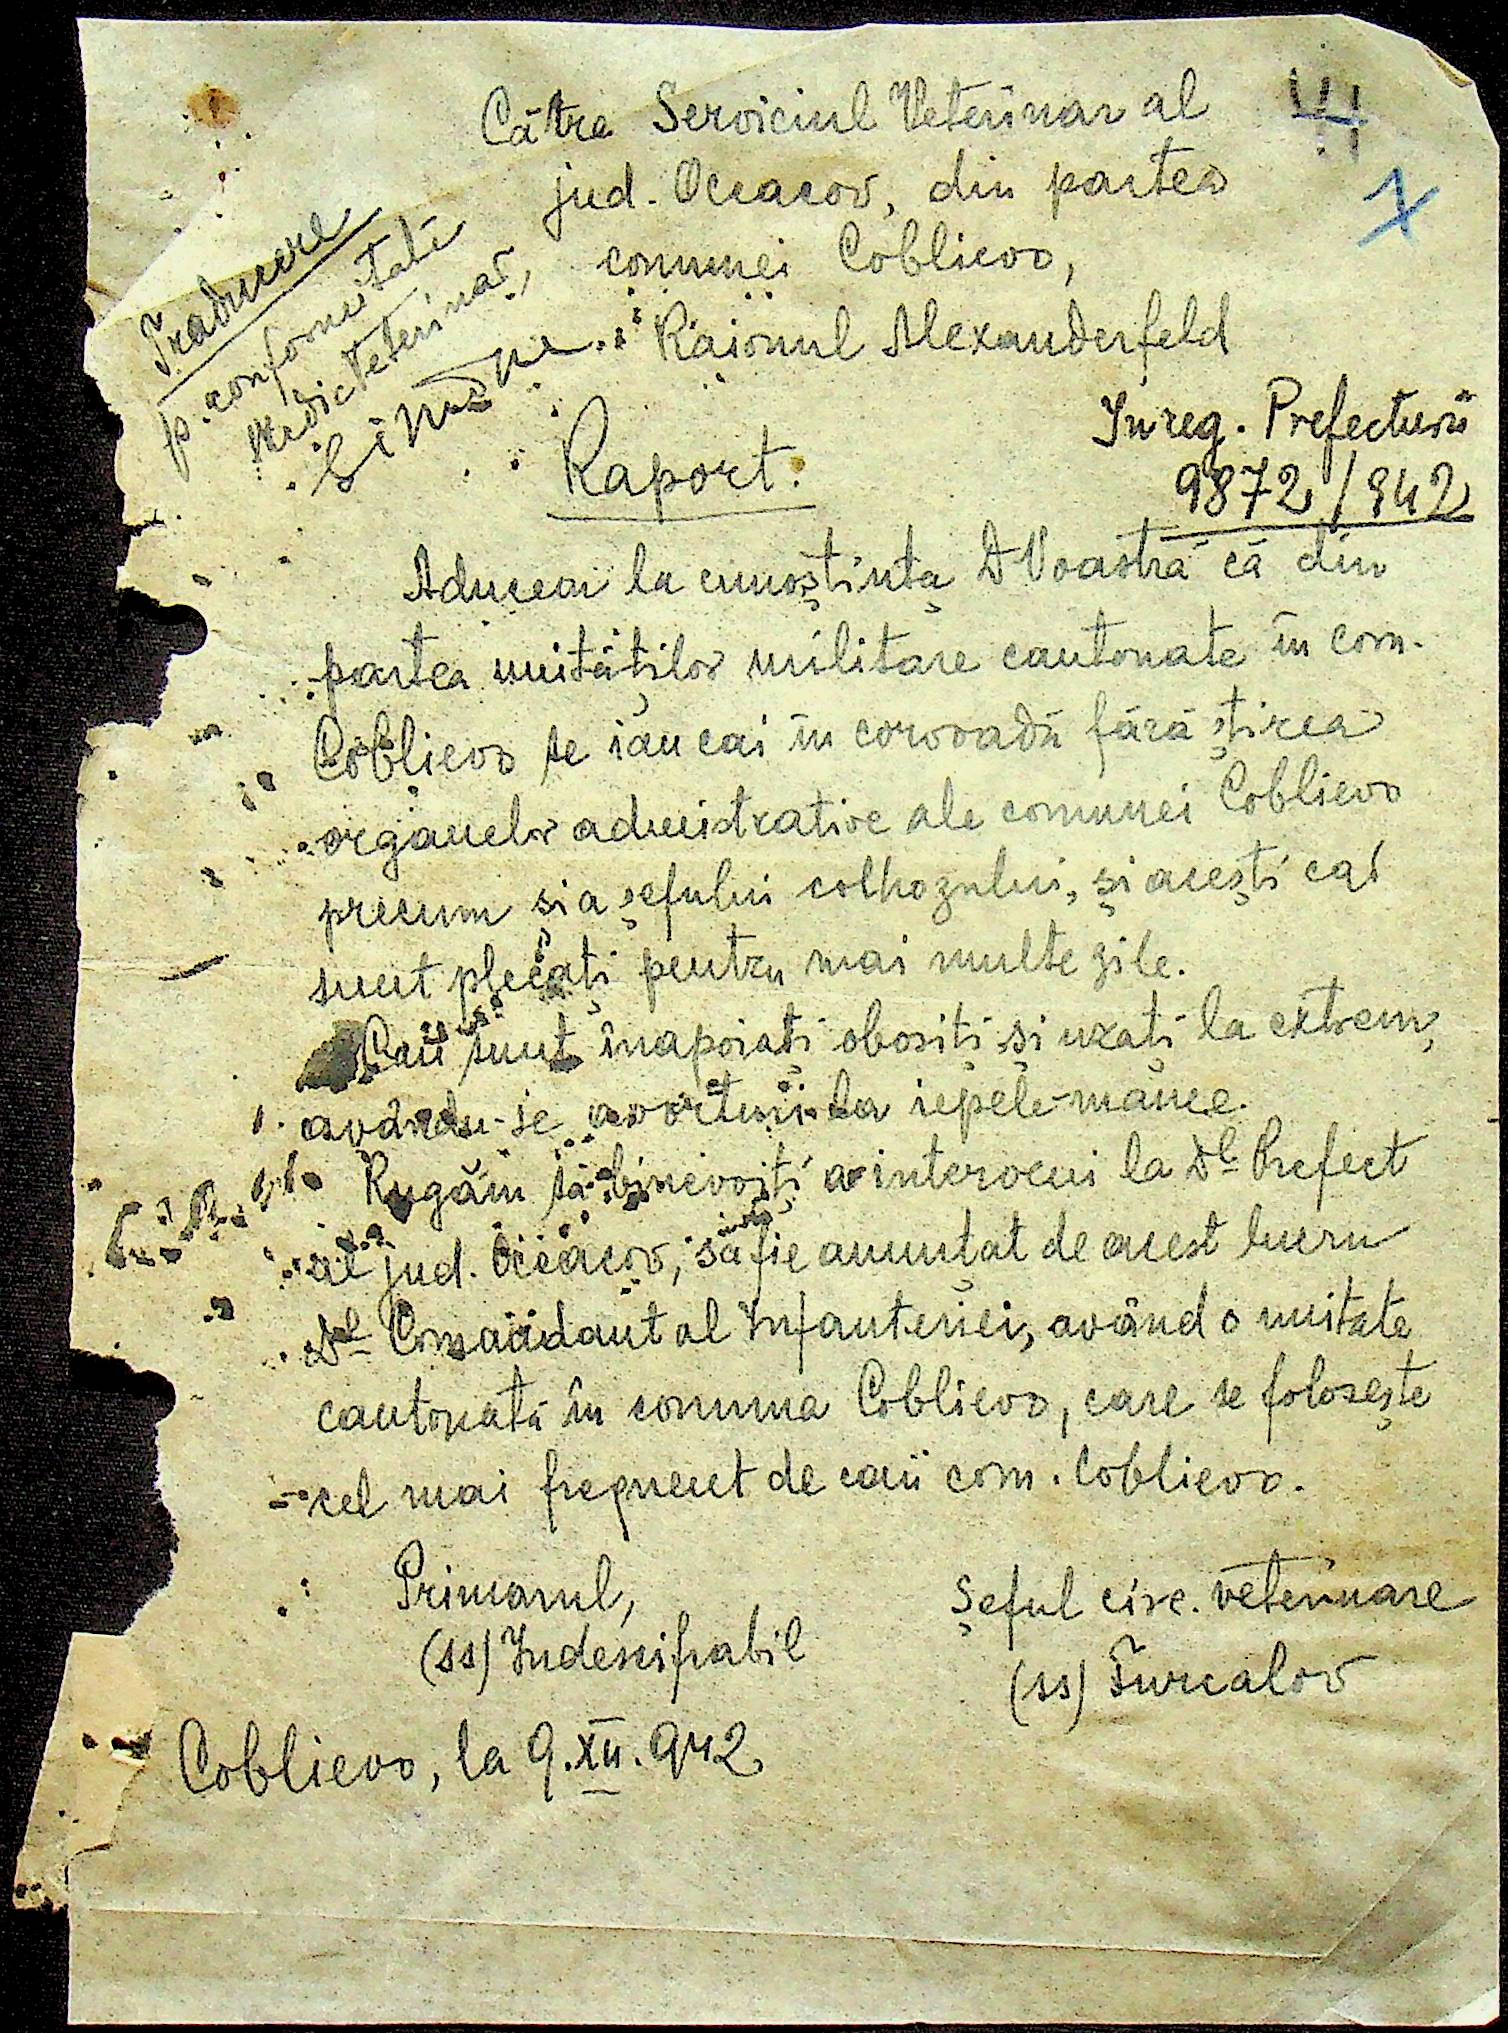 Către Serviciul Veterinar al
jud. Oceacov, din partea
comunei Coblievo,
Raionul Alexanderfeld
Traducere
p. conformitate
Medic Veterinar,
7
Inreg. Prefecturii
9872/942
Raport.
Aducem la cunoștința D Voastră că din
partea unităților militare cantonate în com.
Coblievo se iau cai în corvoadă fără știrea
organelor administrative ale comunei Coblievo
precum și a șefului colhozului, și acești cai
sunt plecați pentru mai multe zile.
Caii sunt înapoiați obosiți și uzați la extrem,
avându-se avorturi la iepele-mânce.
Rugăm să binevoiți a interveni la Dl Prefect
al jud. Oceacov, să fie anunțat de acest lucru
Dl Comandant al Infanteriei, având o unitate
cantonată în comuna Coblievo, care se folosește
cel mai frequent de caii com. Coblievo.
Primarul,
(ss) Indescifrabil
Șeful circ. veterinare
(ss) Turcalov
Coblievo, la 9.XII.942